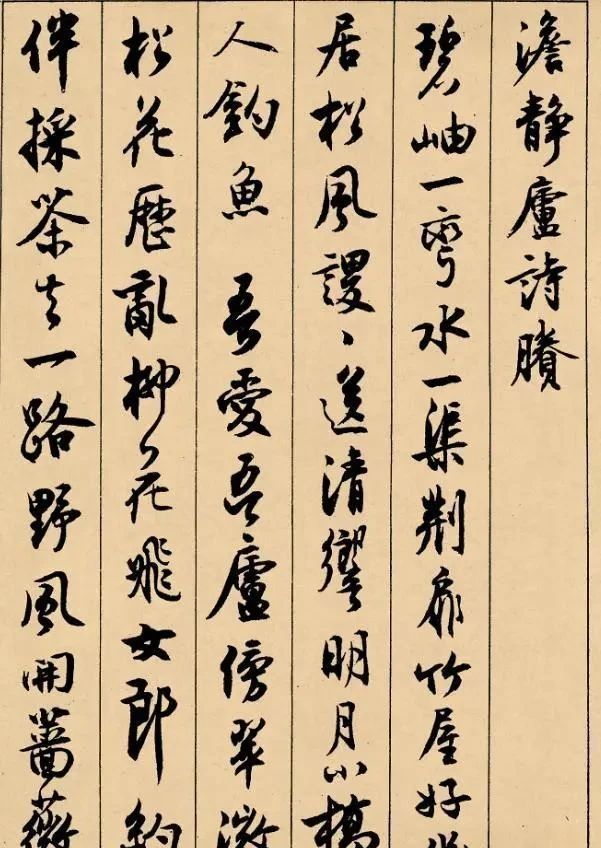 澹靜廬詩賸
碧岫一彎水一渠荊扉竹屋好
居松風謖〻送清響明月小橋
人釣魚 吾愛吾廬傍翠微
松花歷亂柳花飛女郎約
伴採茶去一路野風開薔薇